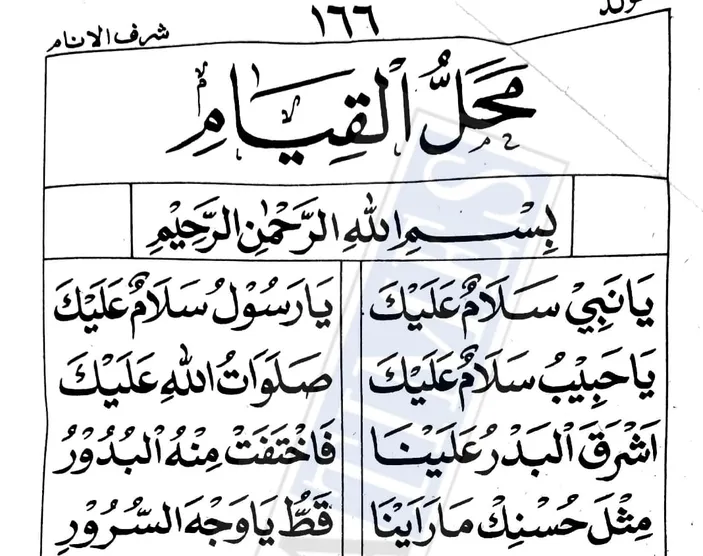 مولد
١٦٦
شرف الانام
مَحَلُّ الْقِيَامِ
بِسْمِ اللهِ الرَّحْمٰنِ الرَّحِيْمِ
يَا نَبِيْ سَلَامٌ عَلَيْكَ يَا رَسُوْلُ سَلَامٌ عَلَيْكَ
يَا حَبِيْبُ سَلَامٌ عَلَيْكَ صَلَوَاتُ اللهِ عَلَيْكَ
اَشْرَقَ الْبَدْرُ عَلَيْنَا فَاخْتَفَتْ مِنْهُ الْبُدُوْرُ
مِثْلَ حُسْنِكْ مَا رَاَيْنَا قَطُّ يَا وَجْهَ السُّرُوْرِ